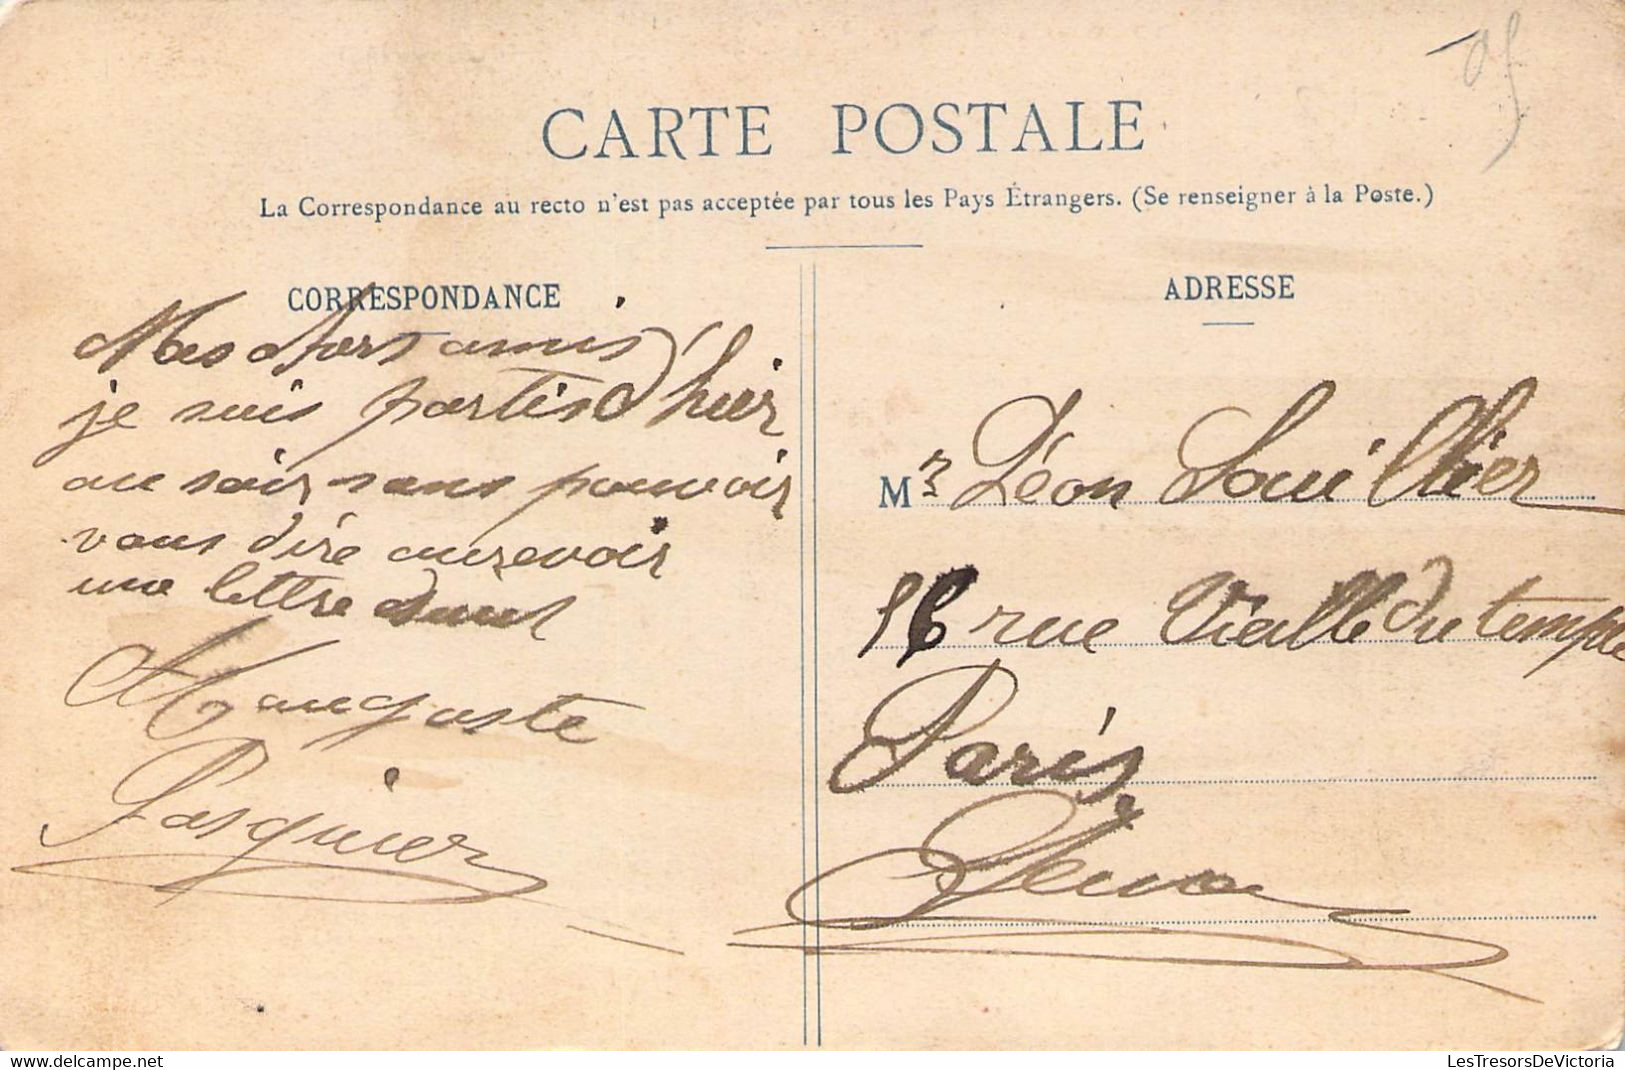 CARTE POSTALE
La Correspondance au recto n'est pas acceptée par tous les Pays Étrangers. (Se renseigner à la Poste.)
CORRESPONDANCE
amis
je suis partis d'hier
au soir sans pouvoir
vous dire aurevoir
une lettre
auguste
Pasquier
ADRESSE
Mr Léon Souillier
rue Vielle du temple
Paris
LesTresorsDeVictoria